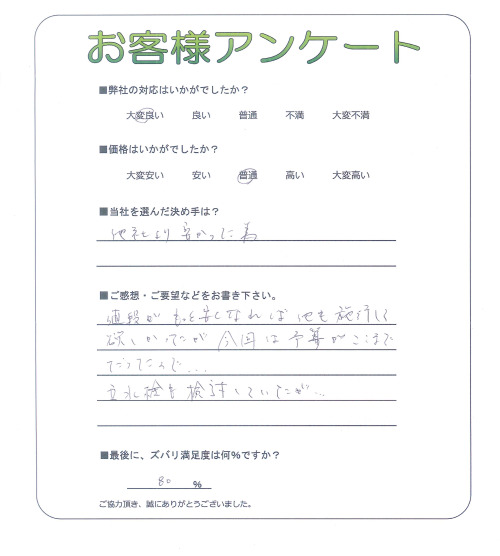 お客様アンケート
■弊社の対応はいかがでしたか？
大変良い 良い 普通 不満 大変不満
■価格はいかがでしたか？
大変安い 安い 普通 高い 大変高い
■当社を選んだ決め手は？
他社より安かった為
■ご感想・ご要望などをお書き下さい。
値段がもっと安くなれば他も施行して
欲しかったが今回は予算がここまで
だったので...
立水栓も検討していたが...
■最後に、ズバリ満足度は何％ですか？
80 ％
ご協力頂き、誠にありがとうございました。